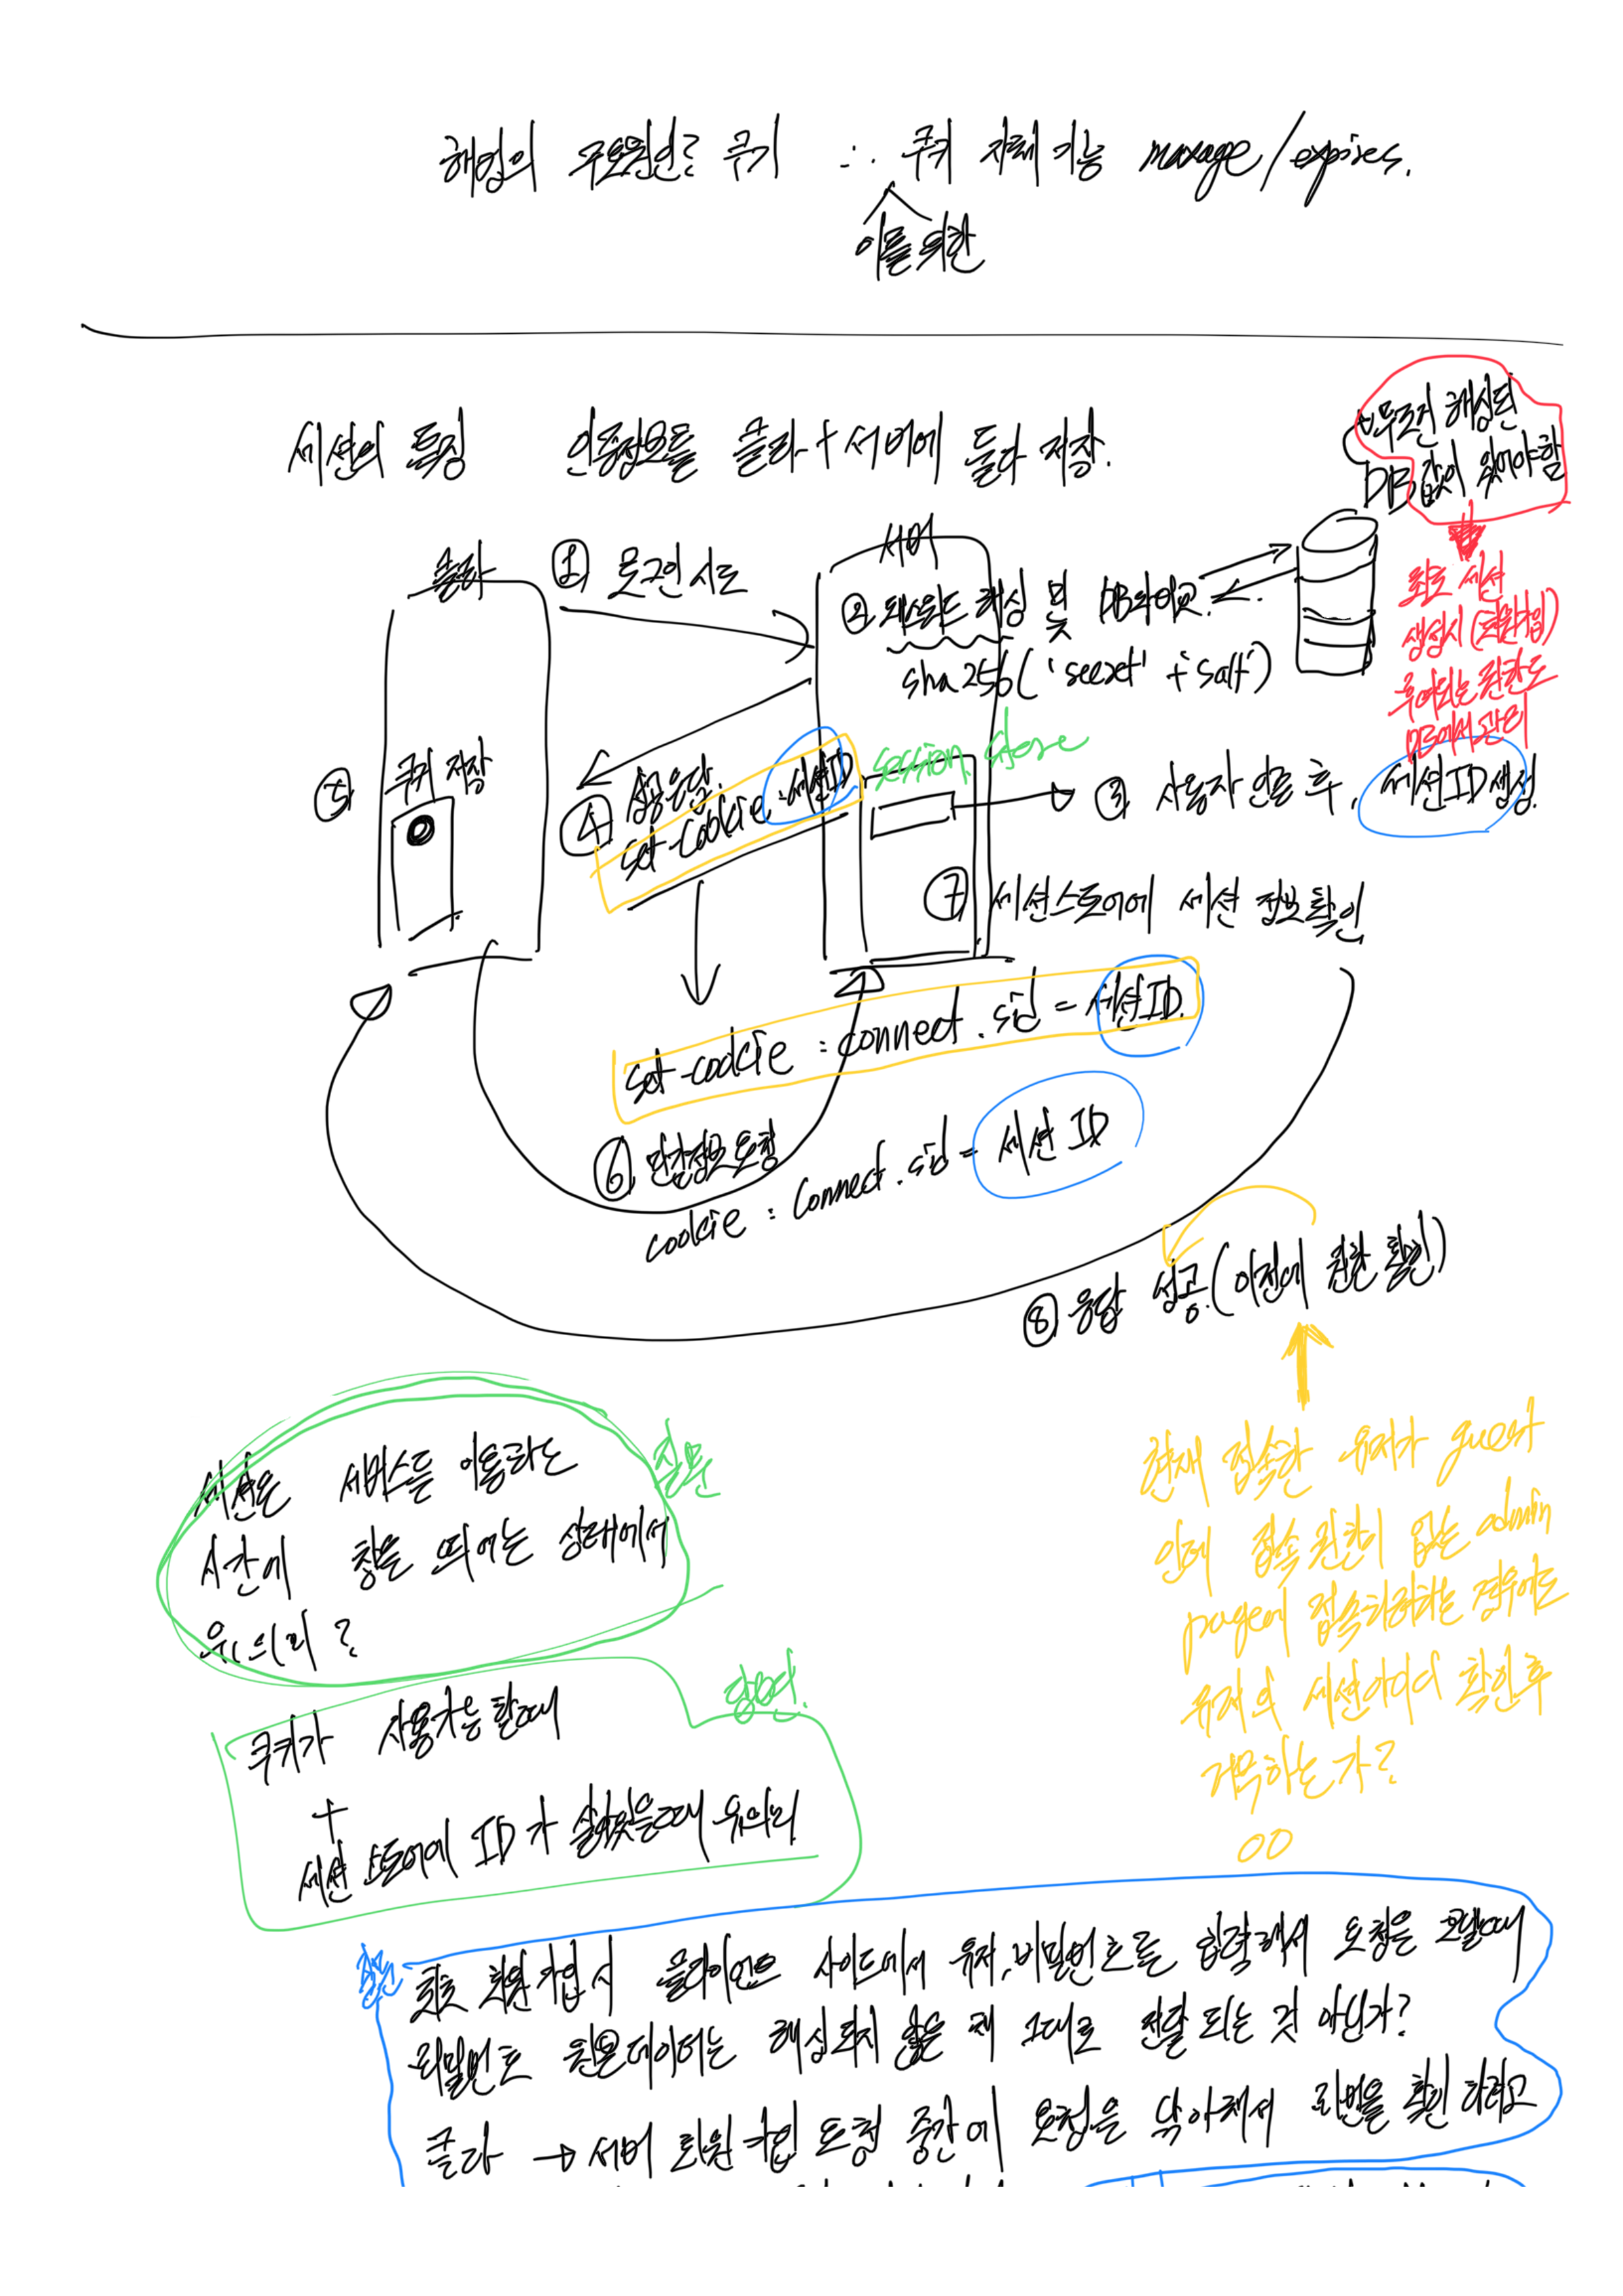 해결의 주요원인? 쿠키 ∴ 쿠키 자체 기능 maxage/expires.
이를 위한
세션의 특징 인증정보를 클라+서버에 둘다 저장.
무조건 해싱된
DB 값이 있어야함
최초 세션
생성시 (회원가입)
부여되는 권한도
DB에서 관리
클라
① 로그인 시도
서버
② 패스워드 해싱 및 DB와 비교.
sha256('secret' + salt)
⑤ 쿠키 저장
④ 성공 응답.
set-cookie : 세션ID
session store
③ 사용자 인증 후, 세션ID 생성.
⑦ 세션스토어에 세션 정보 확인
set-cookie : connect.sid = 세션ID.
⑥ 민감정보 요청
cookie : connect.sid = 세션 ID
⑧ 응답 성공.(이전에 권한 확인)
현재 접속한 유저가 guest
인데 접속 권한이 없는 admin
page에 접속하려하는 경우에도
유저의 세션아이디 확인후
거욱하는가?
OO
질문
세션은 서버스를 이용하는
시간에 창을 띄에는 상태에서
유의미?
답변.
쿠키가 사용가능할때
+
세션 스토어에 ID가 살아있을때 유의미
질문
최초 회원가입시 클라이언트 사이드에서 유저,비밀번호를 입력해서 요청을 보낼때
비밀번호 원본데이터는 해싱되지 않은 채 그대로 전달 되는 것 아닌가?
클라 → 서버 회원가입 요청 중간에 요청을 낚아채서 비번을 확인 하려고